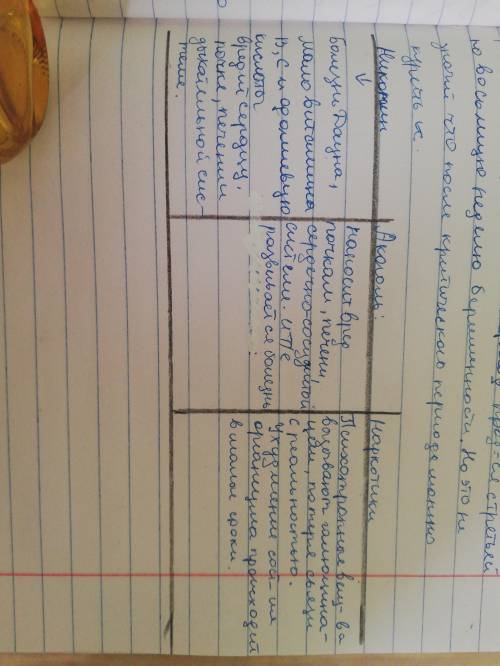 с третьей
ю восьмую неделю беременности. Но это не
значит что после критического периода можно
курить
Никотин
↓
болезни Дауна,
мало витамина
В, С и фолиевую
кислоту
вредит сердцу,
почке, печени
дыхательной сис-
теме.
Алкоголь:
наносит вред
почкам, печени,
сердечно-сосудистой
системе. и
развивается болезнь
Наркотики
Психотропные вещ-ва
вызывают галюцина-
ции, потеря связи
с реальностью.
Ухудшение сост-ия
организма происходит
в малые сроки.